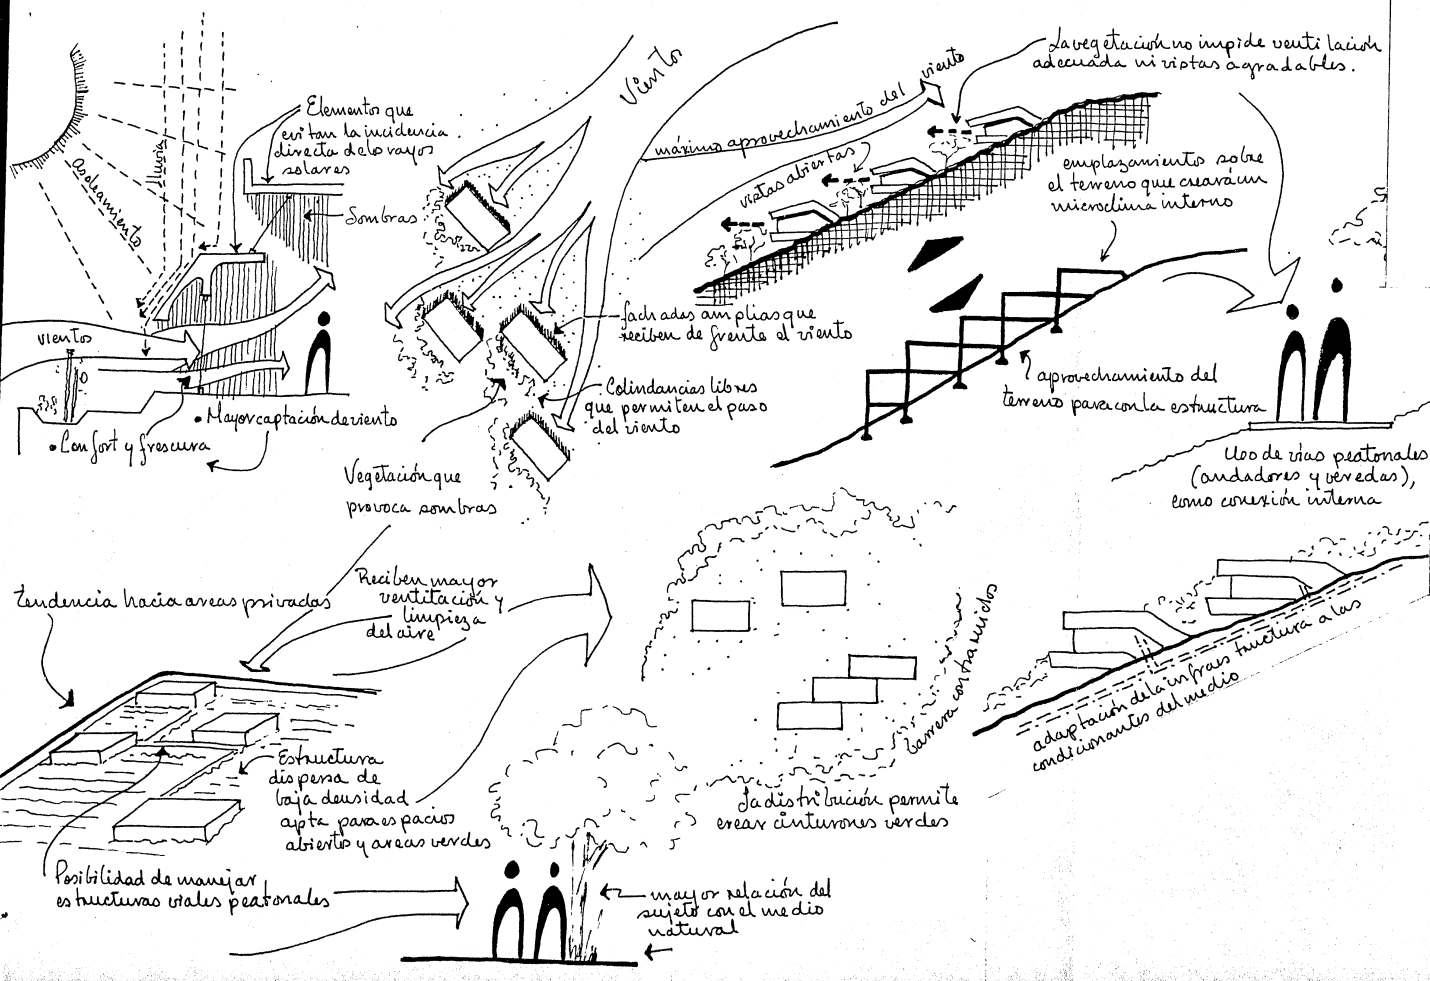 Asoleamiento
lluvia
Elementos que
evitan la incidencia
directa de los rayos
solares
Sombras
vientos
• Mayor captación de viento
• Confort y frescura
Viento
fachadas amplias que
reciben de frente el viento
Colindancias libres
que permiten el paso
del viento
Vegetación que
provoca sombras
máximo aprovechamiento del viento
vistas abiertas
La vegetación no impide ventilación
adecuada ni vistas agradables.
emplazamiento sobre
el terreno que creará un
microclima interno
aprovechamiento del
terreno para con la estructura
Uso de vias peatonales
(andadores y veredas),
como conexión interna
tendencia hacia areas privadas
Reciben mayor
ventitación y
limpieza
del aire
Estructura
dispersa de
baja densidad
apta para espacios
abiertos y areas verdes
Posibilidad de manejar
estructuras viales peatonales
barrera contra ruidos
La distribución permite
crear cinturones verdes
mayor relación del
sujeto con el medio
natural
adaptación de la infraestructura a las
condicionantes del medio